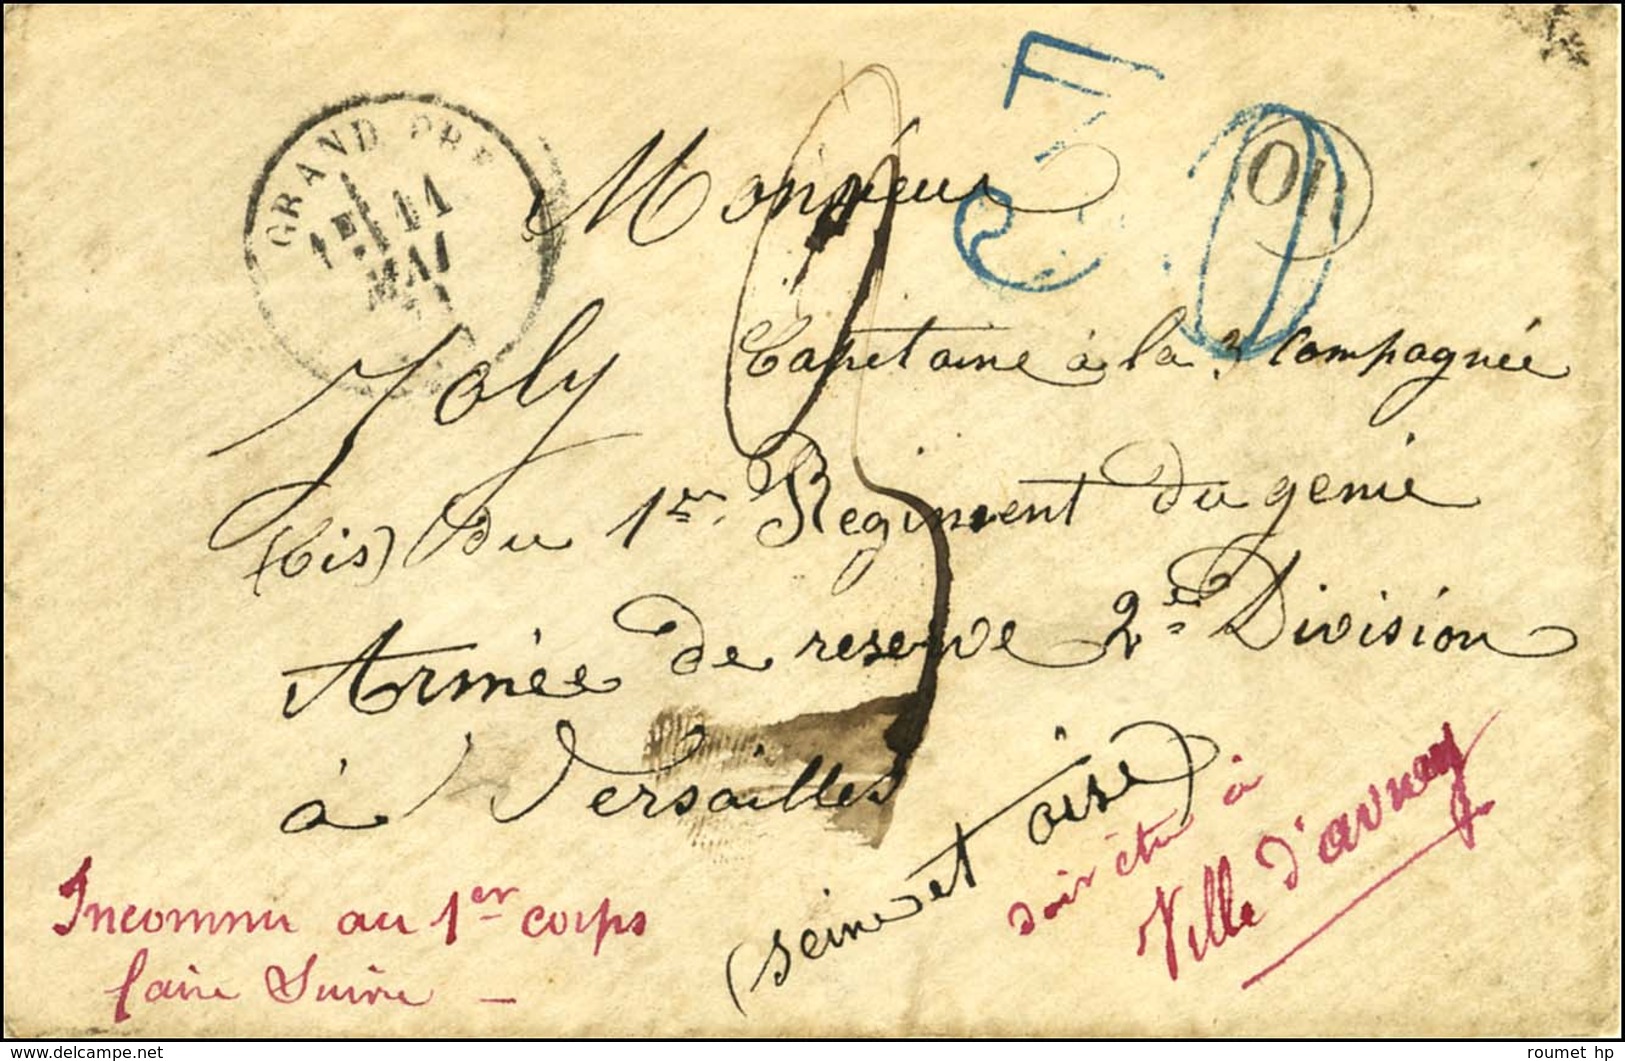 GRAND PRE
1E 11
MAI
71
OR
Monsieur
Joly Capitaine à la 3 Compagnie
(bis) du 1er Regiment du genie
Armée de reserve 2e Division
à Versailles
(seine et oise)
Inconnu au 1er corps
faire Suivre -
doit être à
Ville d'avray
www.delcampe.net
roumet hp